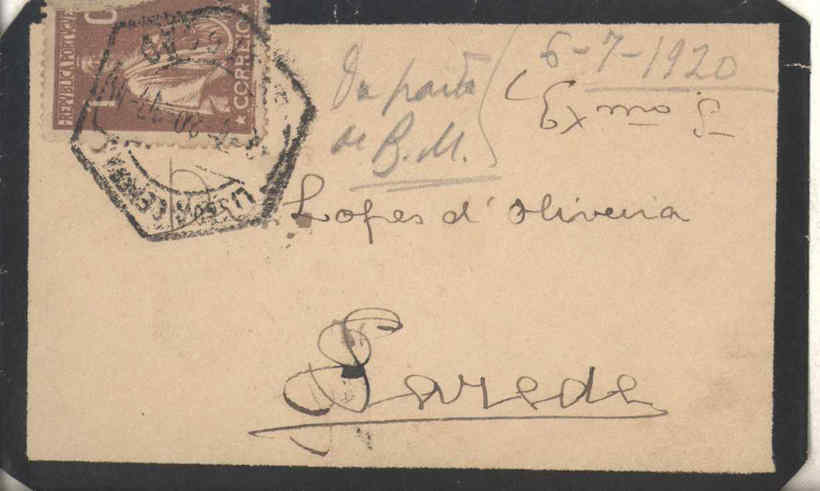 REPUBLICA PORTUGUESA
CORREIO
LISBOA CENTRAL
6-7-1920
Da parte
de B.M.
Exmo Sr
Lopes d'Oliveira
Parede